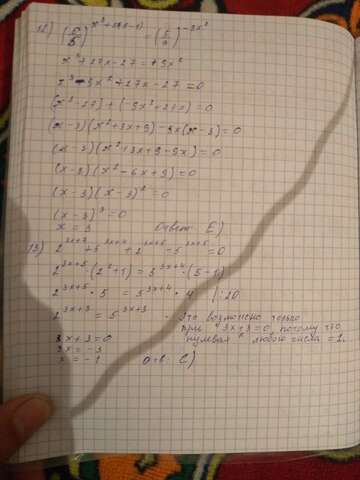 12) (5/3)^(x³+27x-27) = (5/3)^(-9x²)
x³+27x-27=+9x²
x³-9x²+27x-27=0
(x³-27)+(-9x²+27x)=0
(x-3)(x²+3x+9)-9x(x-3)=0
(x-3)(x²+3x+9-9x)=0
(x-3)(x²-6x+9)=0
(x-3)(x-3)²=0
(x-3)³=0
x=3 Ответ E)
13) =0
2^(3x+5)·(2²+1)=5^(3x+4)·(5-1)
2^(3x+5)·5=5^(3x+4)·4 |:20
2^(3x+3)=5^(3x+3) - это возможно только
при 3x+3=0, потому что
3x+3=0 нулевая любого числа =1.
3x=-3
x=-1 Отв. C)